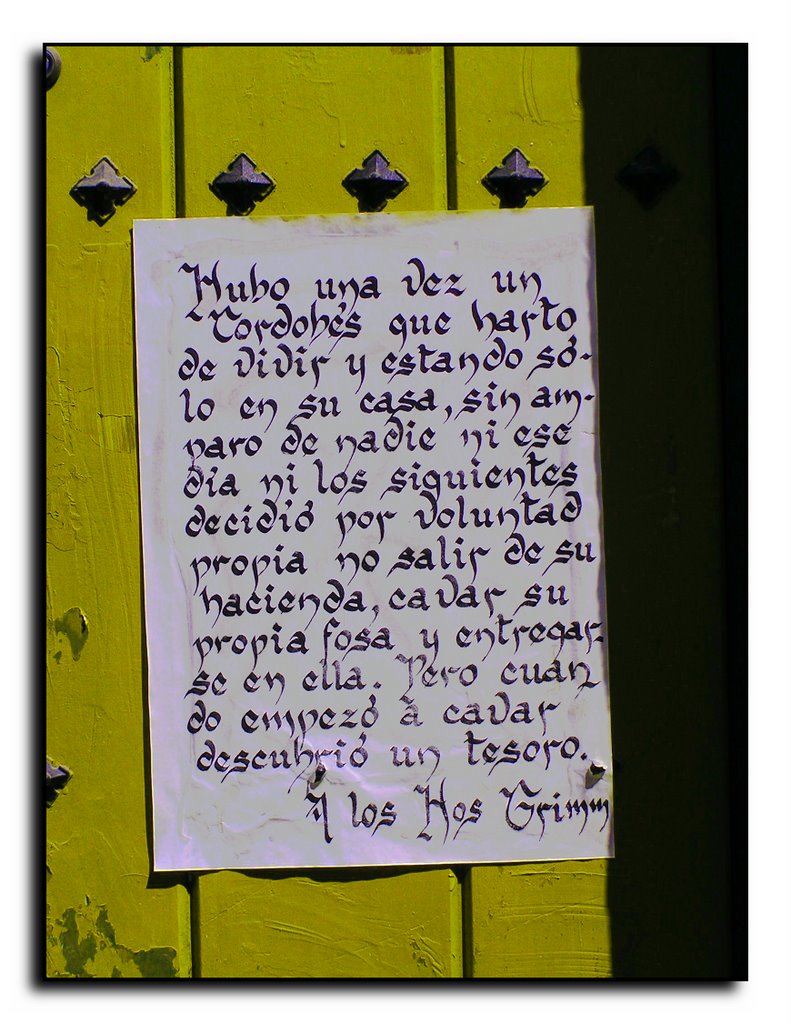 Hubo una vez un
Cordobés que harto
de vivir y estando só-
lo en su casa, sin am-
paro de nadie ni ese
día ni los siguientes
decidió por voluntad
propia no salir de su
hacienda, cavar su
propia fosa y entregar-
se en ella. Pero cuan
do empezó à cavar
descubrió un tesoro.
A los Hos Grimm